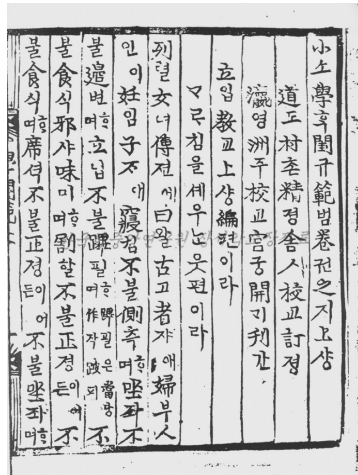 小쇼學ᄒᆞᆨ閨규範범卷권之지上샹
道도村촌精졍舍人校교訂졍
瀛영洲주校교宮궁開ᄀᆡ刊간
立입敎교上샹編편이라
ᄀᆞᄅᆞ침을셰우ᄂᆞᆫ웃편이라
列렬女녀傳젼에曰왈古고者쟈애婦부人
인이妊임子ᄌᆞ애寢침不불側측ᄒᆞ며坐좌不
불邊변ᄒᆞ며立닙不불蹕필ᄒᆞ며蹕필은當방作작跛피不
불食식邪샤味미ᄒᆞ며割할不불正졍이어든不
불食식ᄒᆞ며席셕不불正졍이어든不불坐좌ᄒᆞ며